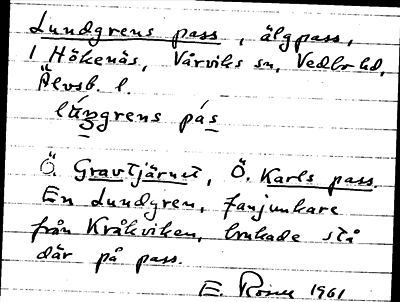 Lundgrens pass, älgpass,
1 Hökenäs, Vårviks sn, Vedbo hd,
Älvsb. l.
Ö. Gravtjärnet, Ö. Karls pass.
En Lundgren, fanjunkare
från Kråkviken, brukade stå
där på pass.
E. 1961